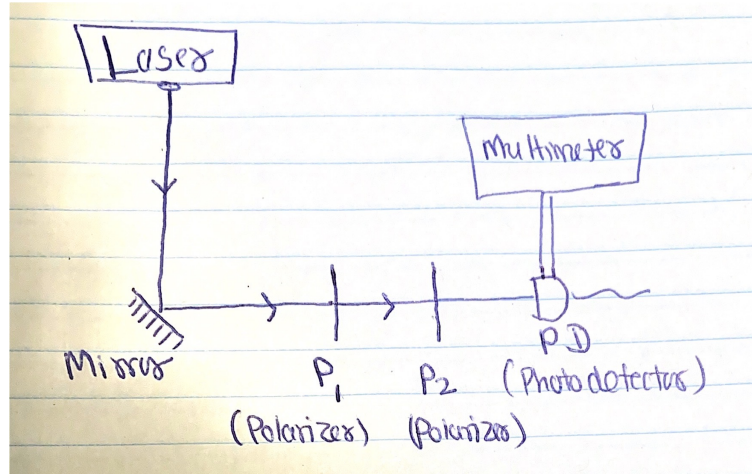 Laser
Multimeter
Mirror
P1
(Polarizer)
P2
(Polarizer)
PD
(Photodetector)